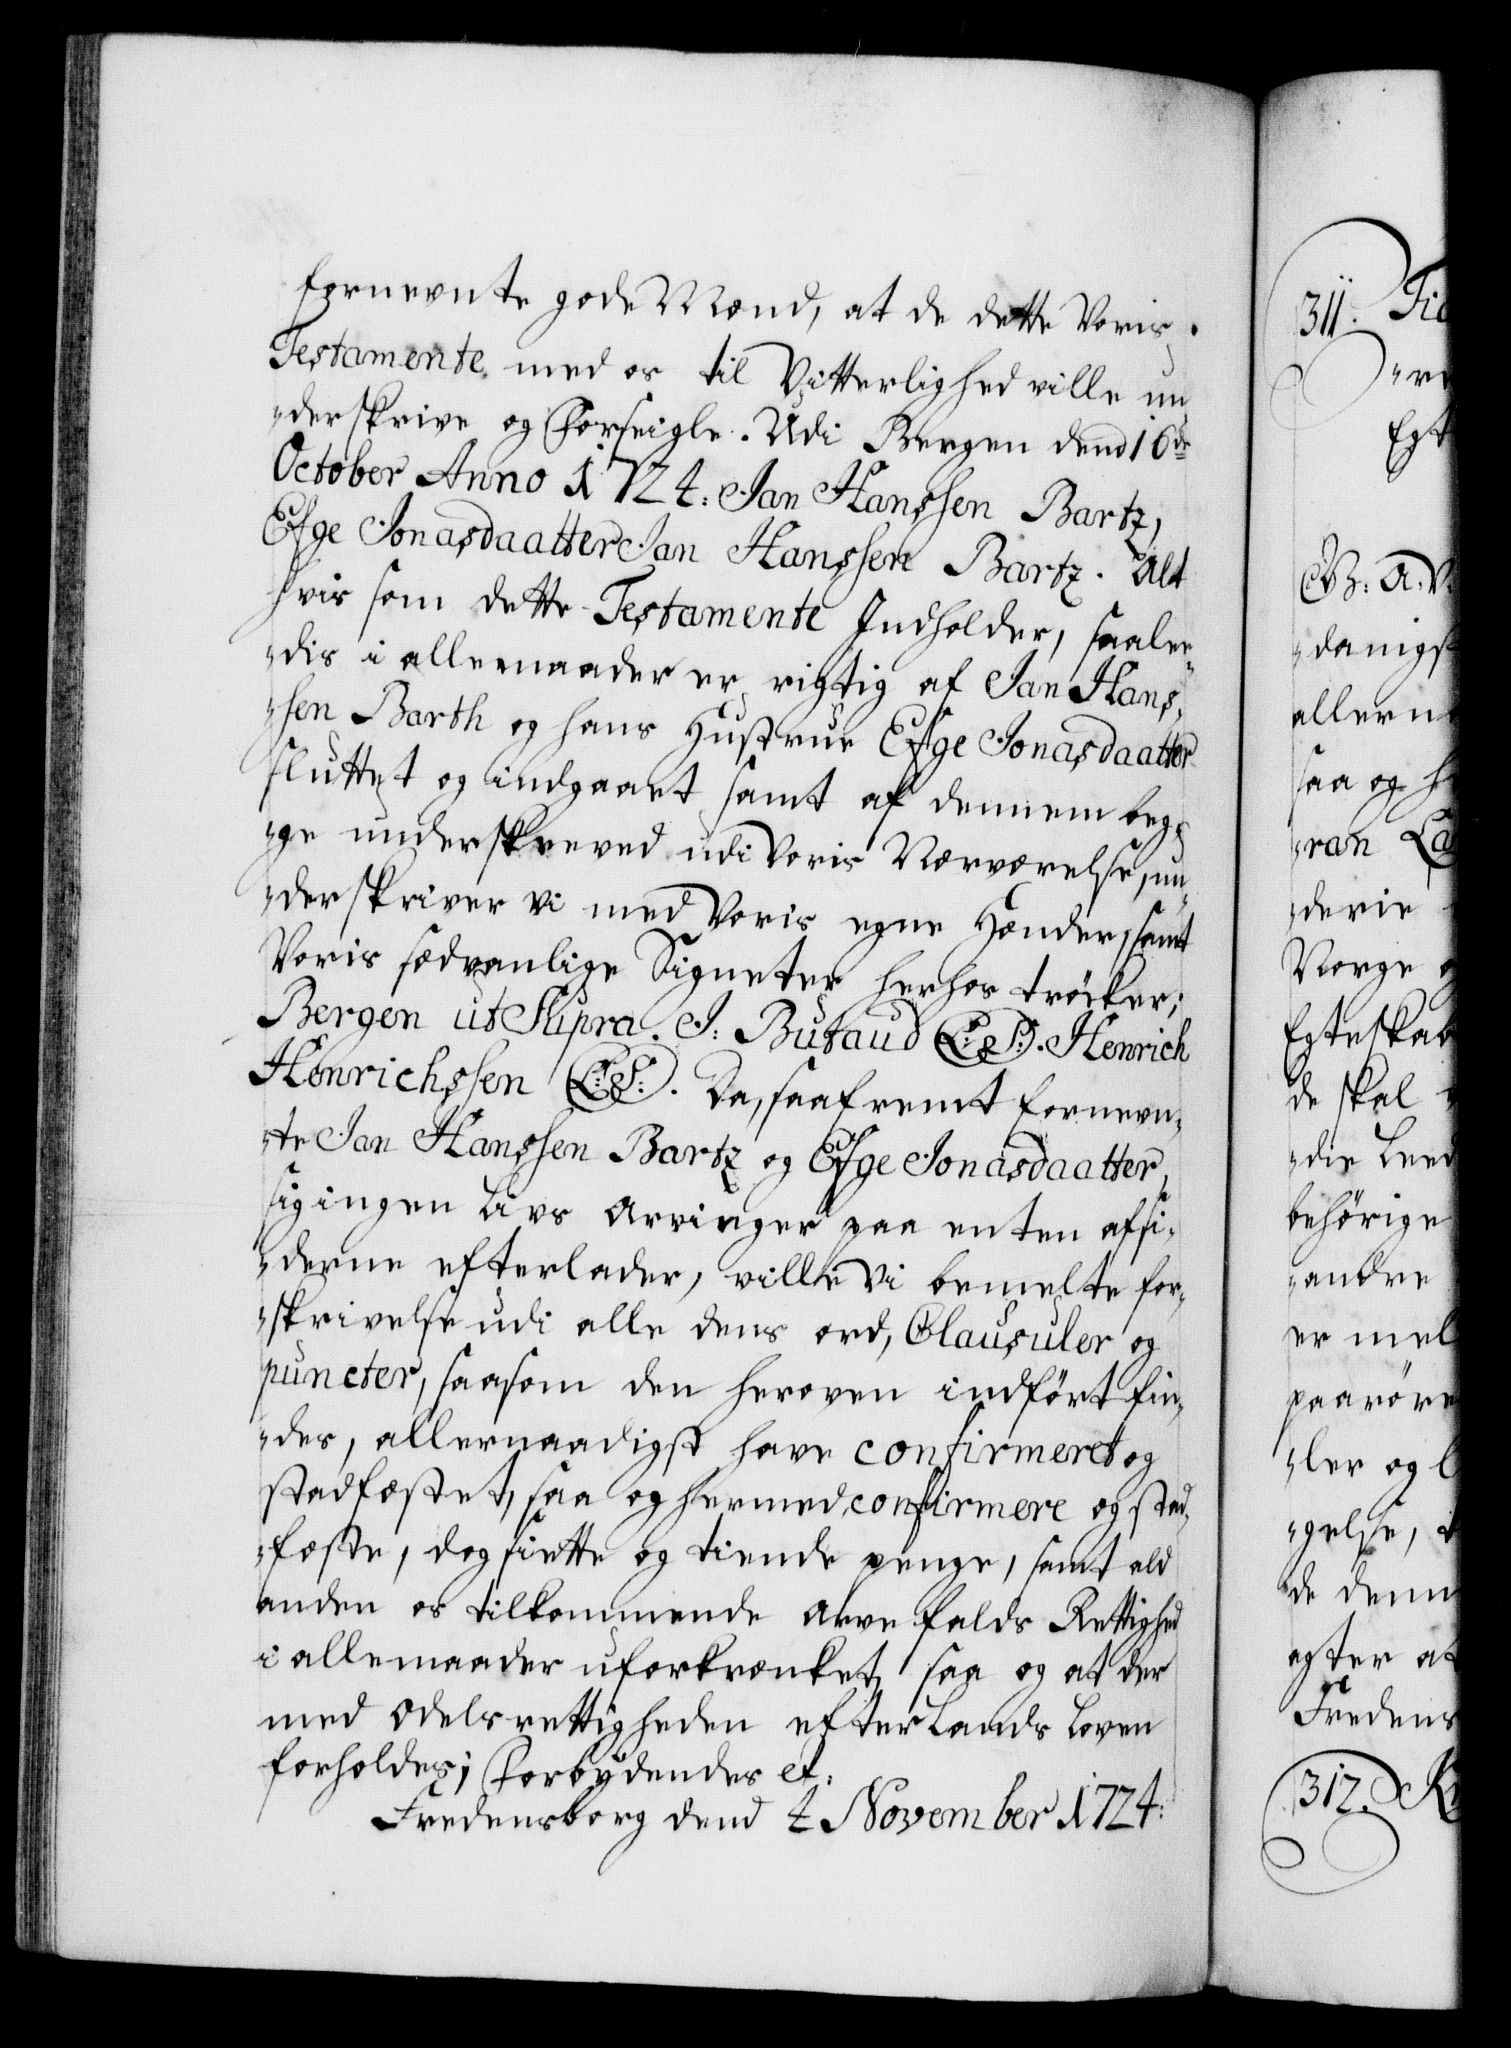 fornevnte gode Mænd, at de dette Voris
Testamente med os til Vitterlighed ville un
"derskrive og forseigle. Udi Bergen dend 16de
October Anno 1724. Jan Hanssen Bartz,
Efge Jonasdaatter Jan Hanssen Bartz. Alt
hvis som dette Testamente Indholder, saale„
„dis i allemaader er rigtig af Jan Hans„
„sen Barth og hans Hustrue Efge Jonasdaatter
sluttet og indgaaet samt af dennem beg„
„ge underskreved udi Voris Nærværelse, un„
„derskriver vi med Voris egne Hænder, samt
Voris sædvanlige Signeter herhos tröcker;
Bergen ut Supra. J: Butaud L:S:. Henrich
Henrichssen L:S:. Da, saafremt fornevn„
„te Jan Hanssen Bartz og Efge Jonasdaatter,
sig ingen Livs Arvinger paa enten afsi„
„derne efterlader, ville Vi bemelte for„
„skrivelse udi alle dens ord, Clausuler og
puncter, saasom den heroven indført fin„
„des, allernaadigst have confirmeret og
stadfæstet, saa og hermed confirmere og stad„
„fæste, dog siette og tiende penge, samt ald
anden os tilkommende Arve falds Rettighed
i allemaader uforkrænket, saa og at der
med Odelsrettigheden efter Lands Loven
forholdes; Forbydendes et.
Fredensborg dend 4 November 1724:
311. Tid
„re
Egt
Gr: A. V.
„danigst
allern
saa og h
„ran La
„derie
Norge o
Egteskab
de skal
„die Leed
behørige
„andre
er mel
paarøre
„ler og l
„gelse, t
de denn
agter at
Fredens
312. Kr